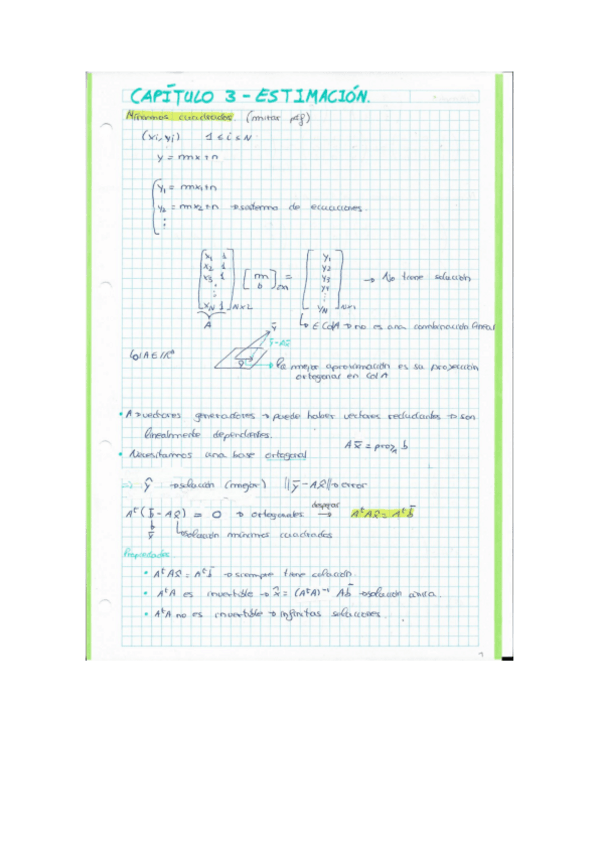 CAPÍTULO 3 - ESTIMACIÓN.
Mínimos cuadrados. (mirar pdf)
(xi, yi) 1 ≤ i ≤ N
y = mx + n
y₁ = mx₁+n
y₂ = mx₂+n → sistema de ecuaciones.
⋮
[x₁ 1; x₂ 1; x₃ 1; ⋮; x_N 1] N×2 [m; b] = [y₁; y₂; y₃; y₄; ⋮; y_N] → No tiene solución
A
∈ ColA → no es una combinación lineal
ȳ
ȳ-Ax̂
la mejor aproximación es su proyección
ortogonal en Col A
• A → vectores generadores → puede haber vectores redundantes → son
linealmente dependientes.
• Necesitamos una base ortogonal
⇒ ŷ → solución (mejor) ||ȳ - Ax̂|| → error
Aᵗ(b̄ - Ax̂) = 0 → ortogonales despejar → AᵗAx̂ = Aᵗb̄
b̄
ȳ
solución mínimos cuadrados
Propiedades
• AᵗAx̂ = Aᵗb̄ → siempre tiene solución.
• AᵗA es invertible → x̂ = (AᵗA)⁻¹ Ab̄ → solución única.
• AᵗA no es invertible → infinitas soluciones.
1